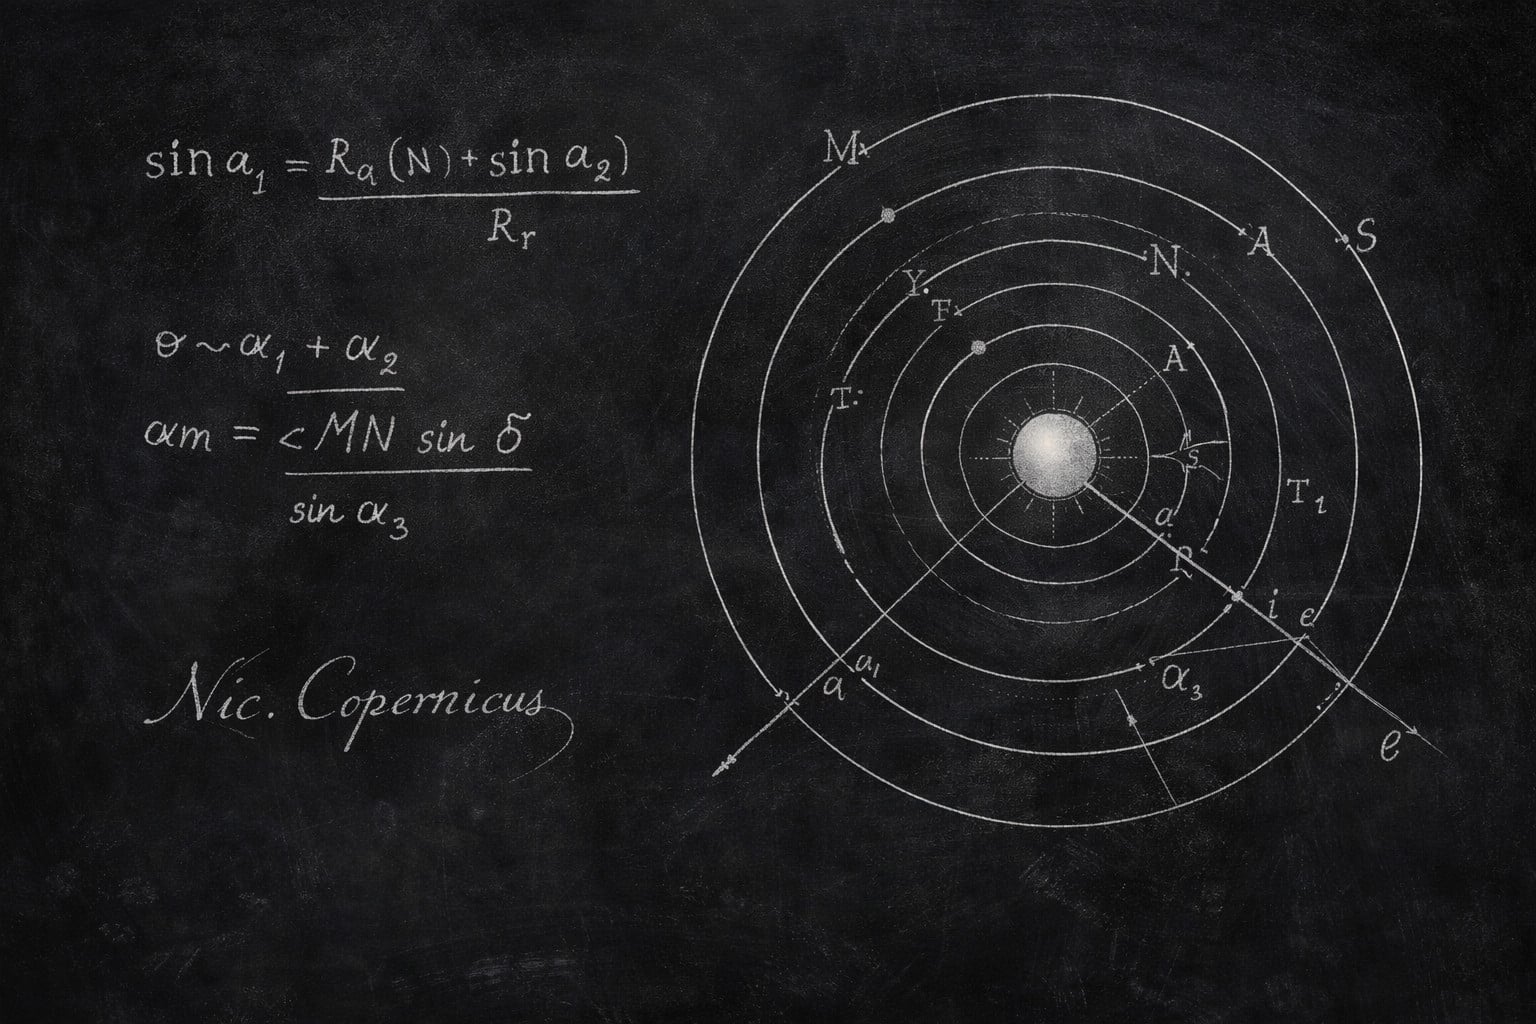 sin a₁ = R_a (N) + sin a₂)
R_r
α₁ + α₂
αm = < MN sin δ
sin α₃
Nic. Copernicus
M
A
S
N.
Y.
F
A
T:
S
T₁
a
i
e
a₁
a
α₃
e